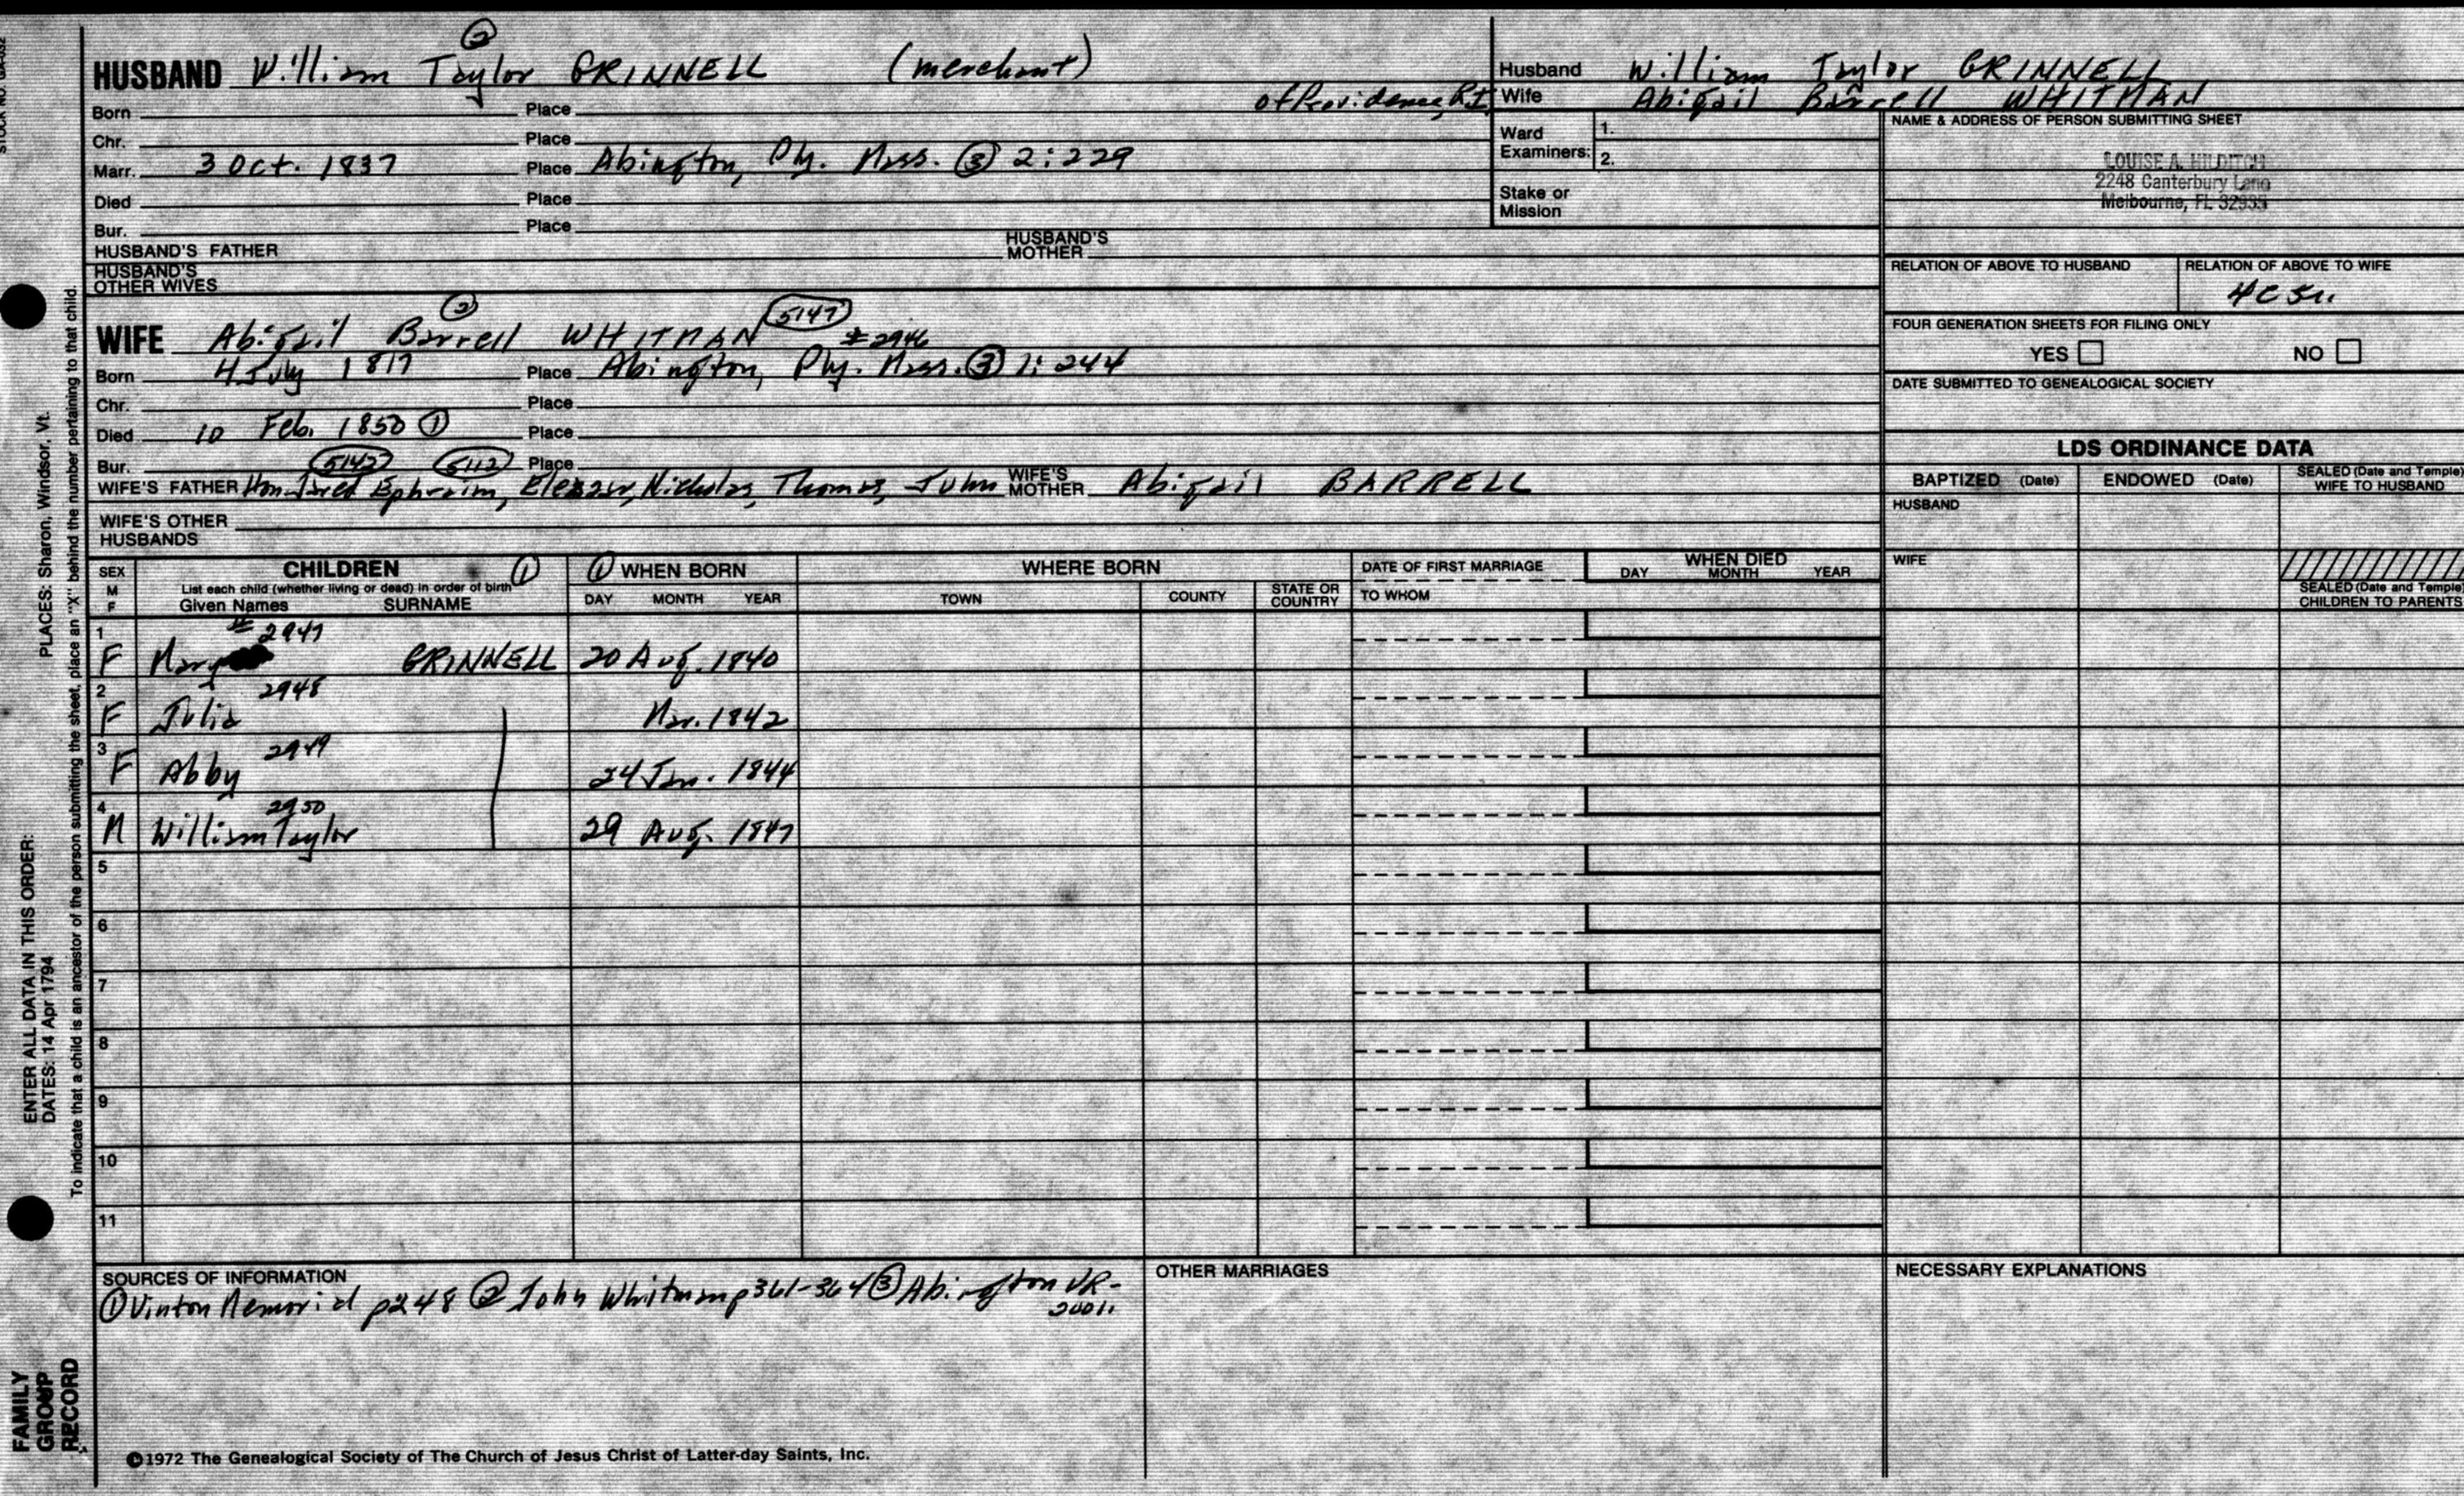 STOCK NO. GA-032
HUSBAND William Taylor GRINNELL ② (merchant)
of Providence, RI
Born Place
Chr. Place
Marr. 3 Oct. 1837 Place Abington, Ply. Mass. ③ 2:229
Died Place
Bur. Place
HUSBAND'S FATHER HUSBAND'S MOTHER
HUSBAND'S OTHER WIVES
Husband William Taylor GRINNELL
Wife Abigail Barrell WHITMAN
Ward Examiners: 1.
2.
Stake or Mission
NAME & ADDRESS OF PERSON SUBMITTING SHEET
LOUISE A. HILDITCH
2248 Canterbury Lane
Melbourne, FL 32935
RELATION OF ABOVE TO HUSBAND RELATION OF ABOVE TO WIFE
4C5r.
FOUR GENERATION SHEETS FOR FILING ONLY
YES NO
DATE SUBMITTED TO GENEALOGICAL SOCIETY
WIFE Abigail Barrell WHITMAN ② 5147 #2946
Born 4 July 1817 Place Abington, Ply. Mass. ③ 1:244
Chr. Place
Died 10 Feb. 1850 ① Place
Bur. 5142 5112 Place
WIFE'S FATHER Hon Jared Ephraim, Eleazar, Nicholas, Thomas, John WIFE'S MOTHER Abigail BARRELL
WIFE'S OTHER HUSBANDS
LDS ORDINANCE DATA
BAPTIZED (Date) ENDOWED (Date) SEALED (Date and Temple) WIFE TO HUSBAND
HUSBAND
WIFE
SEALED (Date and Temple) CHILDREN TO PARENTS
SEX M F CHILDREN ① List each child (whether living or dead) in order of birth Given Names SURNAME
① WHEN BORN DAY MONTH YEAR
WHERE BORN TOWN COUNTY STATE OR COUNTRY
DATE OF FIRST MARRIAGE TO WHOM
WHEN DIED DAY MONTH YEAR
1 F Mary #2947 GRINNELL 20 Aug. 1840
2 F Julia 2948 Mar. 1842
3 F Abby 2949 24 Jan. 1844
4 M William Taylor 2950 29 Aug. 1847
5
6
7
8
9
10
11
SOURCES OF INFORMATION
① Vinton Memorial p248 ② John Whitman p361-364 ③ Abington VR-
OTHER MARRIAGES
NECESSARY EXPLANATIONS
©1972 The Genealogical Society of The Church of Jesus Christ of Latter-day Saints, Inc.
FAMILY GROUP RECORD
ENTER ALL DATA IN THIS ORDER:
DATES: 14 Apr 1794
PLACES: Sharon, Windsor, Vt.
To indicate that a child is an ancestor of the person submitting the sheet, place an "X" behind the number pertaining to that child.